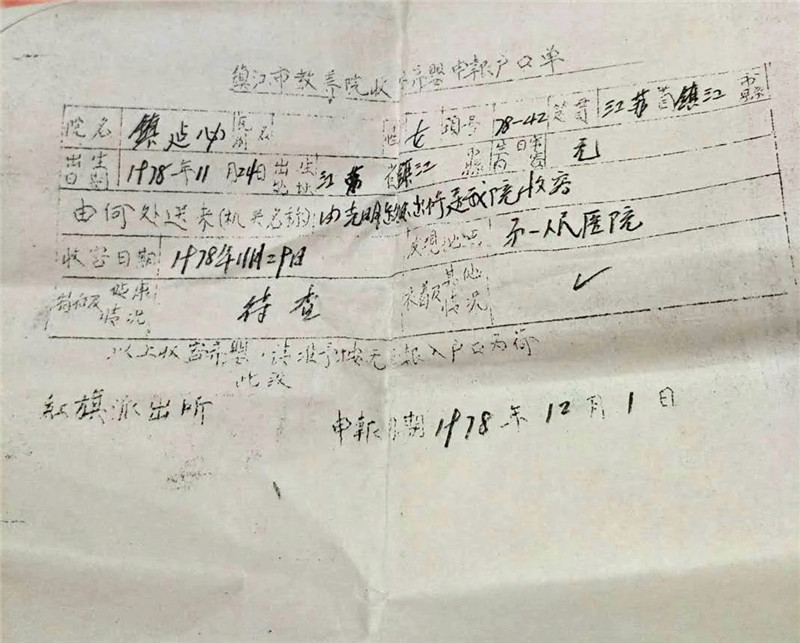 镇江市教养院收 弃婴申報户口单
院名 鎮延 别名 性 女 項号 78-42 籍貫 江苏省鎮江市縣
出生日期 1978年11月24日 出生地址 江苏省镇江市縣 生日 无
由何处送来(机关名称) 由光明派出所送我院收容
收容日期 1978年11月29日 发现地点 第一人民医院
特征及健康情况 待查 衣着及其他情况 ✓
以上收容弃婴,請准予 報入户口为荷
此致
紅旗派出所 申報日期 1978年12月1日